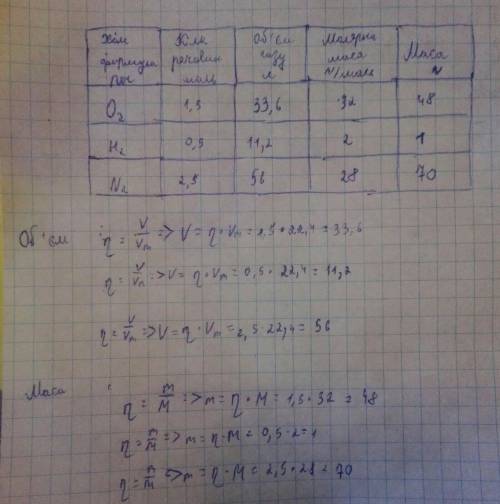 Хім формула реч | К-ла речовин моль | Об'єм газу л | Молярна маса г/моль | Маса г
O₂ | 1,5 | 33,6 | 32 | 48
H₂ | 0,5 | 11,2 | 2 | 1
N₂ | 2,5 | 56 | 28 | 70
Об'єм : η = V/Vm => V = η · Vm = 1,5 · 22,4 = 33,6
η = V/Vm => V = η · Vm = 0,5 · 22,4 = 11,2
η = V/Vm => V = η · Vm = 2,5 · 22,4 = 56
Маса :
η = m/M => m = η · M = 1,5 · 32 = 48
η = m/M => m = η · M = 0,5 · 2 = 1
η = m/M => m = η · M = 2,5 · 28 = 70